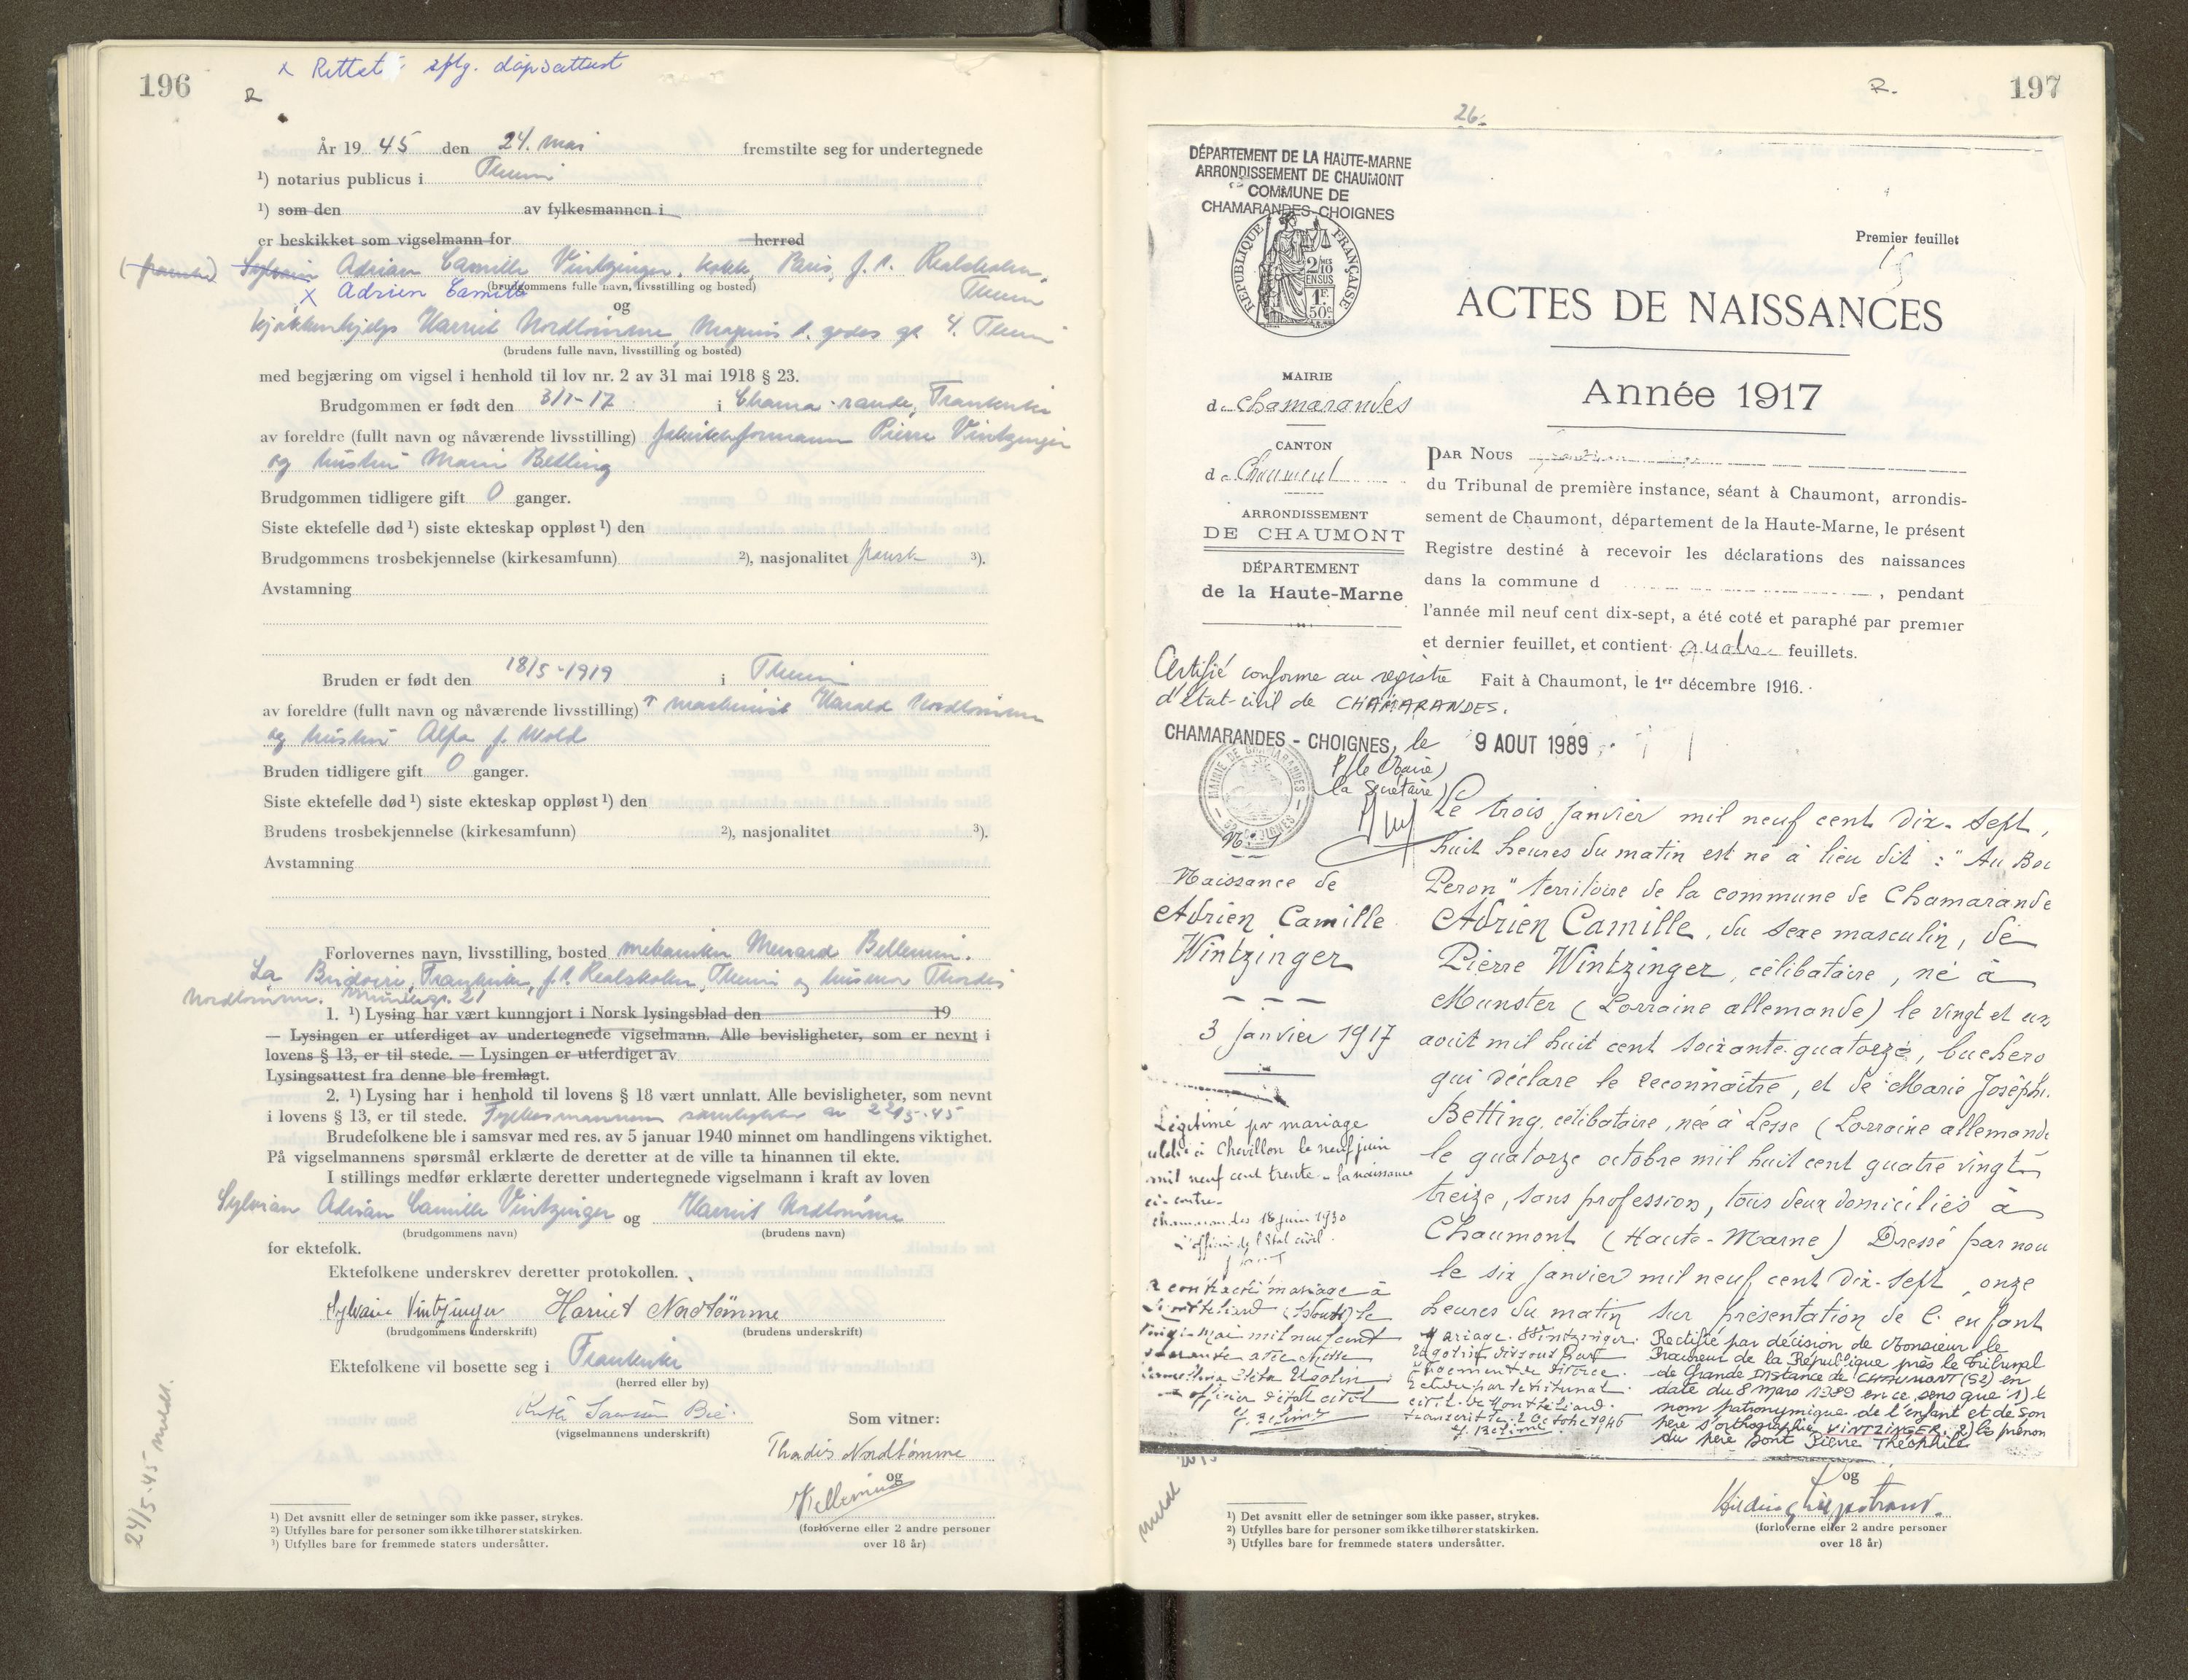 196
x Rettet sflg. dåpsattest
R
År 1945 den 24. mai fremstilte seg for undertegnede
¹) notarius publicus i
¹) som den av fylkesmannen i
er beskikket som vigselmann for herred
Sylvain Adrian Camille Vintzinger, kokk, Paris, f. t. Realskolen,
x Adrien Camille
(brudgommens fulle navn, livsstilling og bosted)
og
kjøkkenhjelp Harriet Nordtømme, Magnus d. godes gt. 4.
(brudens fulle navn, livsstilling og bosted)
med begjæring om vigsel i henhold til lov nr. 2 av 31 mai 1918 § 23.
Brudgommen er født den 3/1-17 i Chamarande, Frankrike
av foreldre (fullt navn og nåværende livsstilling) fabrikkformann Pierre Vintzinger
og hustru Marie Betting
Brudgommen tidligere gift 0 ganger.
Siste ektefelle død ¹) siste ekteskap oppløst ¹) den
Brudgommens trosbekjennelse (kirkesamfunn) ²), nasjonalitet fransk ³).
Avstamning
Bruden er født den 18/5-1919 i
av foreldre (fullt navn og nåværende livsstilling) maskinist Harald Nordtømme
og hustru Alfa f. Wold
Bruden tidligere gift 0 ganger.
Siste ektefelle død ¹) siste ekteskap oppløst ¹) den
Brudens trosbekjennelse (kirkesamfunn) ²), nasjonalitet ³).
Avstamning
Forlovernes navn, livsstilling, bosted mekaniker
Frankrike, f. t. Realskolen, og husmor Thordis
Nordtømme.
1. ¹) Lysing har vært kunngjort i Norsk lysingsblad den 19
— Lysingen er utferdiget av undertegnede vigselmann. Alle bevisligheter, som er nevnt i
lovens § 13, er til stede. — Lysingen er utferdiget av
Lysingsattest fra denne ble fremlagt.
2. ¹) Lysing har i henhold til lovens § 18 vært unnlatt. Alle bevisligheter, som nevnt
i lovens § 13, er til stede. Fylkesmannens samtykke av 22/5-45
Brudefolkene ble i samsvar med res. av 5 januar 1940 minnet om handlingens viktighet.
På vigselmannens spørsmål erklærte de deretter at de ville ta hinannen til ekte.
I stillings medfør erklærte deretter undertegnede vigselmann i kraft av loven
Sylvian Adrian Camille Vintzinger og Harriet Nordtømme
(brudgommens navn) (brudens navn)
for ektefolk.
Ektefolkene underskrev deretter protokollen.
Sylvain Vintzinger Harriet Nordtømme
(brudgommens underskrift) (brudens underskrift)
Ektefolkene vil bosette seg i Frankrike
(herred eller by)
(vigselmannens underskrift)
Som vitner:
Thordis Nordtømme
og
(forloverne eller 2 andre personer
over 18 år)
24/5-45 meldt.
¹) Det avsnitt eller de setninger som ikke passer, strykes.
²) Utfylles bare for personer som ikke tilhører statskirken.
³) Utfylles bare for fremmede staters undersåtter.
197
R.
26.
DÉPARTEMENT DE LA HAUTE-MARNE
ARRONDISSEMENT DE CHAUMONT
COMMUNE DE
CHAMARANDES-CHOIGNES
RÉPUBLIQUE FRANÇAISE
2/10 EN SUS
1F. 50c
Premier feuillet
ACTES DE NAISSANCES
Année 1917
MAIRIE
de Chamarandes
CANTON
de Chaumont
ARRONDISSEMENT
DE CHAUMONT
DÉPARTEMENT
de la Haute-Marne
PAR NOUS
du Tribunal de première instance, séant à Chaumont, arrondis-
sement de Chaumont, département de la Haute-Marne, le présent
Registre destiné à recevoir les déclarations des naissances
dans la commune d , pendant
l'année mil neuf cent dix-sept, a été coté et paraphé par premier
et dernier feuillet, et contient quatre feuillets.
Fait à Chaumont, le 1er décembre 1916.
Certifié conforme au registre
d'état-civil de CHAMARANDES.
CHAMARANDES - CHOIGNES, le 9 AOUT 1989
P/le Maire,
la Secrétaire,
MAIRIE DE CHAMARANDES CHOIGNES
N° 1
Naissance de
Adrien Camille
Wintzinger
3 janvier 1917
Légitimé par mariage
célébré à Chevillon le neuf juin
mil neuf cent trente. la naissance
ci-contre.
Chamarandes 18 juin 1930
L'officier de l'Etat civil.
A contracté mariage à
Montbéliard (Doubs) le
mai mil neuf cent
quarante avec
officier d'état civil
Le trois janvier mil neuf cent dix-sept,
huit heures du matin est né à lieu dit : "Au Boi
Peron" territoire de la commune de Chamarande
Adrien Camille, du sexe masculin, de
Pierre Wintzinger, célibataire, né à
Munster (Lorraine allemande) le vingt et un
août mil huit cent soixante-quatorze, bucheron
qui déclare le reconnaître, et de Marie Joséphi.
Betting, célibataire, née à Lesse (Lorraine allemande
le quatorze octobre mil huit cent quatre vingt
treize, sans profession, tous deux domiciliés à
Chaumont (Haute-Marne) Dressé par nou
le six janvier mil neuf cent dix-sept, onze
heures du matin sur présentation de l'enfant
Mariage Wintzinger.
dissout par
jugement de divorce.
rendu par le tribunal
civil de Montbéliard.
transcrit le 2 octobre 1946
Rectifié par décision de Monsieur le
Procureur de la République près le Tribunal
de Grande Instance de CHAUMONT (52) en
date du 8 mars 1989 en ce sens que 1) le
nom patronymique de l'enfant et de son
père s'orthographie VINTZINGER. 2) les prénom
du père sont Pierre Théophile
og
(forloverne eller 2 andre personer
over 18 år)
meldt
¹) Det avsnitt eller de setninger som ikke passer, strykes.
²) Utfylles bare for personer som ikke tilhører statskirken.
³) Utfylles bare for fremmede staters undersåtter.